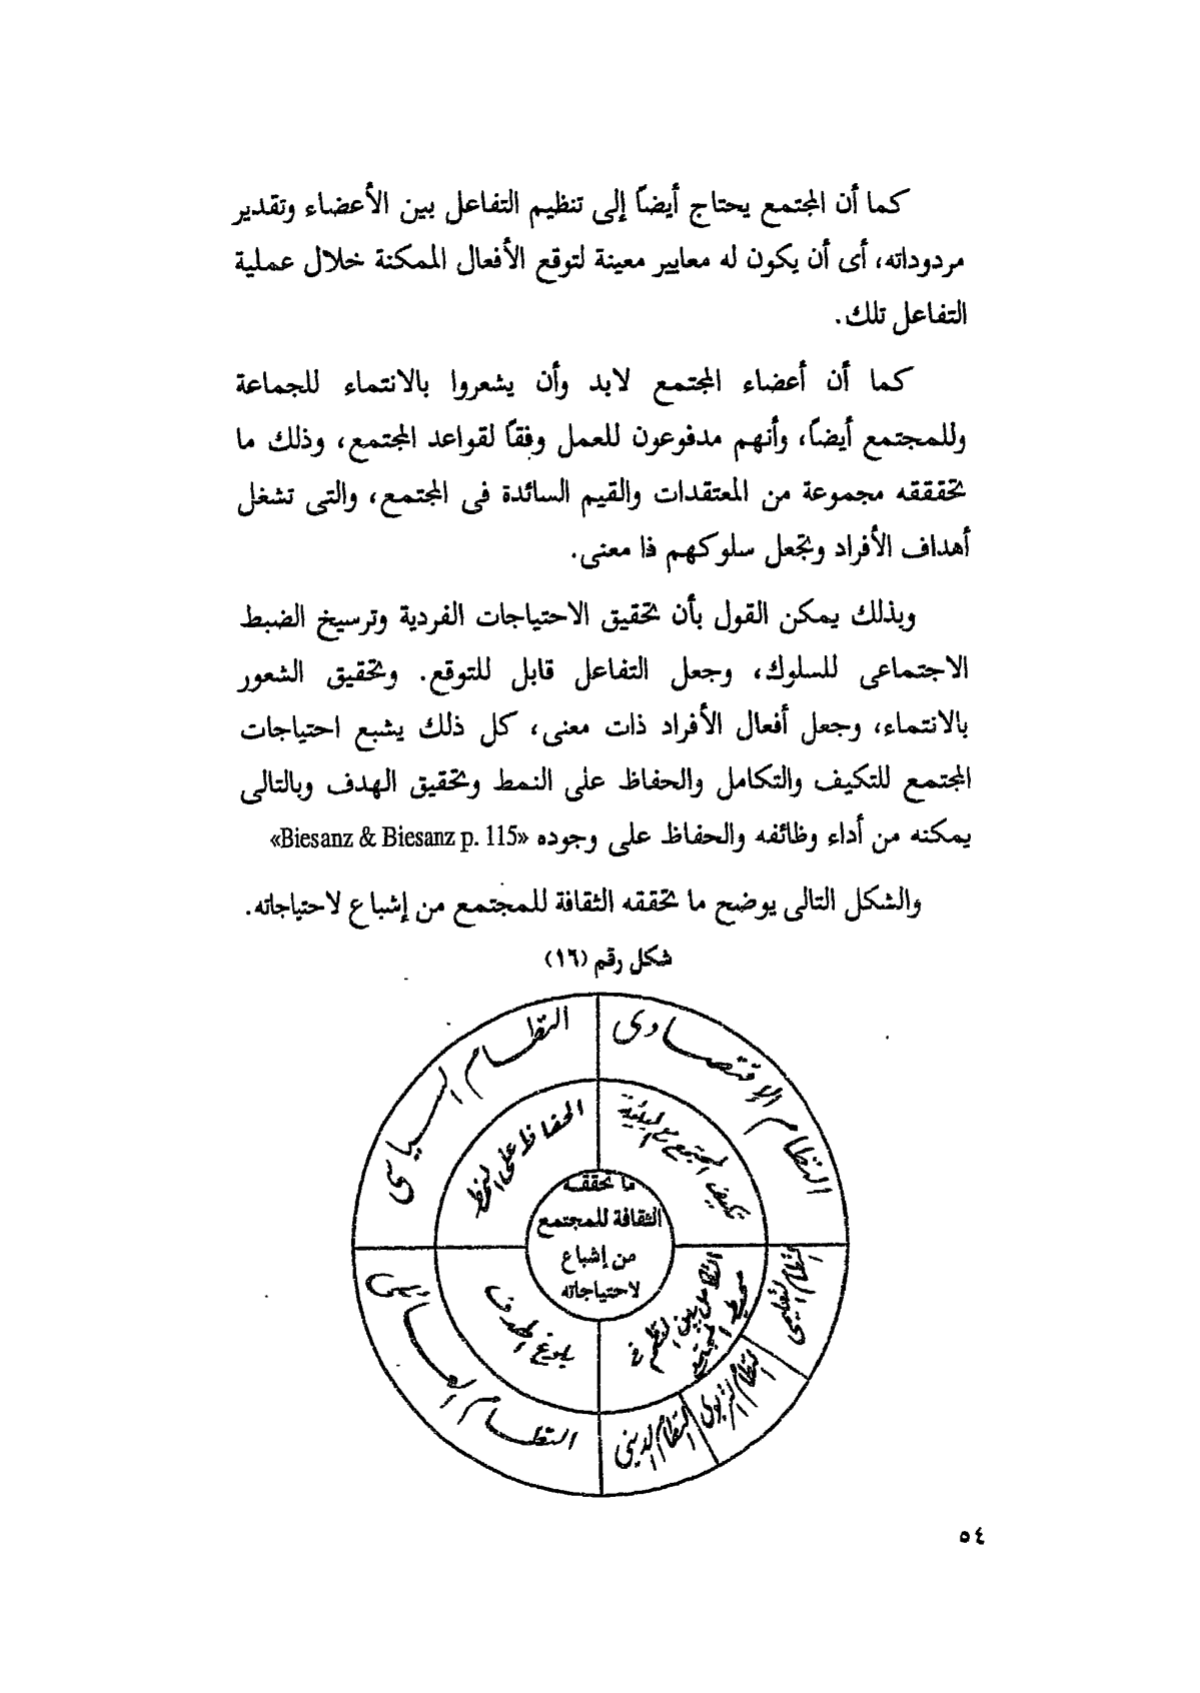 كما أن المجتمع يحتاج أيضاً إلى تنظيم التفاعل بين الأعضاء وتقدير
مردوداته، أى أن يكون له معايير معينة لتوقع الأفعال الممكنة خلال عملية
التفاعل تلك.
كما أن أعضاء المجتمع لابد وأن يشعروا بالانتماء للجماعة
وللمجتمع أيضاً، وأنهم مدفوعون للعمل وفقاً لقواعد المجتمع، وذلك ما
تحققه مجموعة من المعتقدات والقيم السائدة فى المجتمع، والتى تشغل
أهداف الأفراد وتجعل سلوكهم ذا معنى.
وبذلك يمكن القول بأن تحقيق الاحتياجات الفردية وترسيخ الضبط
الاجتماعى للسلوك، وجعل التفاعل قابل للتوقع. وتحقيق الشعور
بالانتماء، وجعل أفعال الأفراد ذات معنى، كل ذلك يشبع احتياجات
المجتمع للتكيف والتكامل والحفاظ على النمط وتحقيق الهدف وبالتالى
يمكنه من أداء وظائفه والحفاظ على وجوده «Biesanz & Biesanz p. 115»
والشكل التالى يوضح ما تحققه الثقافة للمجتمع من إشباع لاحتياجاته.
شكل رقم (١٦)
النظام الإقتصادى
النظام السياسى
تكيف المجتمع مع البيئة
الحفاظ على النمط
ما تحققه
الثقافة للمجتمع
من إشباع
لاحتياجاته
التكامل بين النظم فى
محيط المجتمع
بلوغ الهدف
النظام التعليمى
النظام التربوى
النظام الدينى
النظام العائلى
٥٤